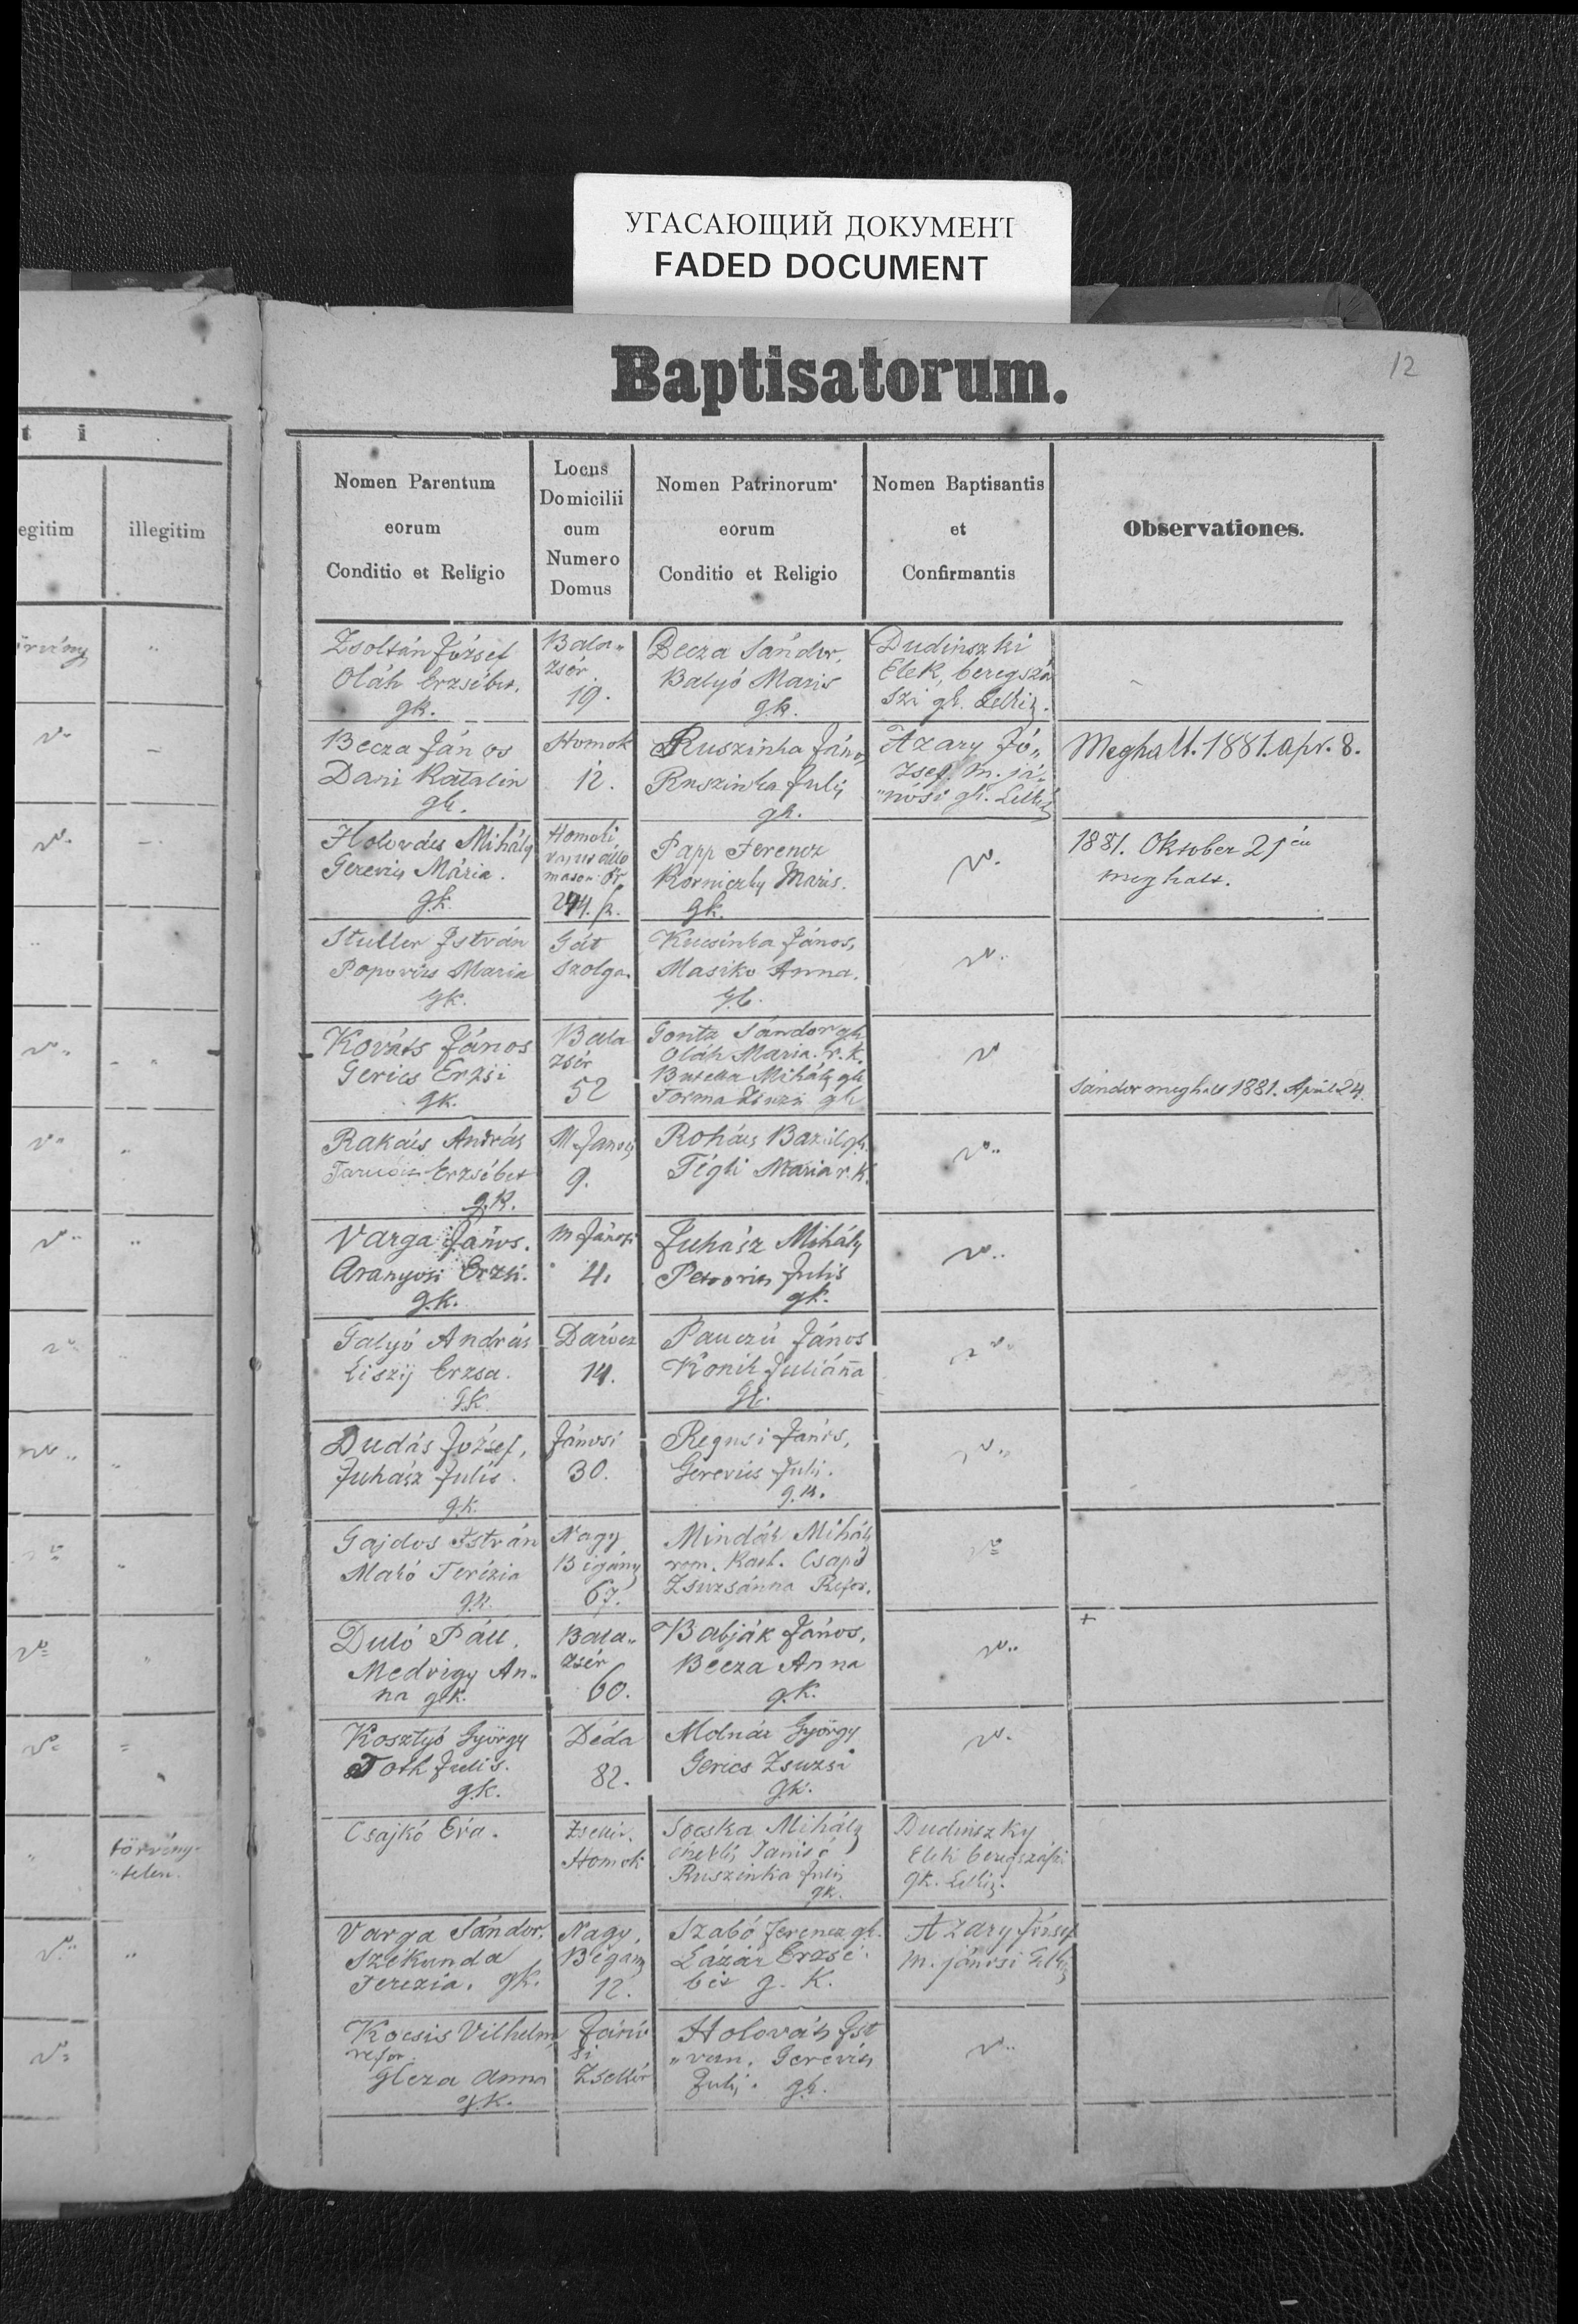 УГАСАЮЩИЙ ДОКУМЕНТ
FADED DOCUMENT
12
Baptisatorum.
t i
egitim
illegitim
Nomen Parentum
eorum
Conditio et Religio
Locus
Domicilii
cum
Numero
Domus
Nomen Patrinorum
eorum
Conditio et Religio
Nomen Baptisantis
et
Confirmantis
Observationes.
Zsoltán József
Oláh Erzsébet.
gk.
Bala„
zsér
19.
Becza Sándor,
Balyó Maris
gk.
Dudinszki
Elek, beregszá
szi gk. Lelkész.
Becza János
Dani Katalin
gk.
Homok
12.
Ruszinka János
Ruszinka Juli
gk.
Azary Jó„
zsef. M. já„
„nosi gk.
Meghalt. 1881. apr. 8.
Holovács Mihály
Gerevics Mária.
gk.
Homoki
Papp Ferencz
Maris.
gk.
v.
1881. Oktober 21én
meghalt.
Stuller István
Popovics Maria
gk.
Gát
Szolga.
Kucsinka János,
Masiko Anna.
gk.
v..
Kováts János
Gerics Erzsi
gk.
Bala
zsér
52
Gonta Sándor gk
Oláh Maria. r. k.
Mihály gk
Torma gk
v
Sándor meghalt 1881. April 24.
Rakács András
Erzsébet
g.k.
M. Janosi
9.
Rohács Bazil gk.
Tégli Maria r. k.
v..
Varga János.
Aranyosi Erzsi.
g.k.
M Jánosi
4.
Juhász Mihály
Petrovics Julis
gk.
v..
Galyó András
Liszij Erzsa.
g.k.
Darócz
14.
Pauczú János
Konik Juliánna
gk.
v..
Dudás József,
Juhász Julis.
g.k.
Jánosi
30.
Regusi János,
Gerevics Juli.
g.k.
v..
Gajdos István
Makó Terézia
g.k.
Nagy
Bigány
67.
Mindák Mihály
rom. Kath. Csapó
Zsuzsánna Refor.
v=
Duló Páll.
Medvigy An„
na g.k.
Bala„
zsér
60.
Babják János.
Becza Anna
g.k.
v..
+
Kosztyó György
Toth Julis.
g.k.
Déda
82.
Molnár György
Gerics Zsuzsi
gk.
v.
törvény-
telen.
Csajkó Éva.
Zsellér.
Homok
Socska Mihály
Ruszinka Juli
gk.
Dudinszky
Elek beregszászi
gk. Lelkész.
Varga Sándor.
Szekunda
Terezia. gk.
Nagy.
Bégány
12.
Szabó Ferencz gk.
Lázár Erzsé„
bet g. K.
Azary József
M. jánosi Lelkész
Kocsis Vilhelm
refor.
Gleza Anna
g.k.
Jánó
si
Zsellér
Holováts Ist
„van. Gerevics
Juli. gk.
v..